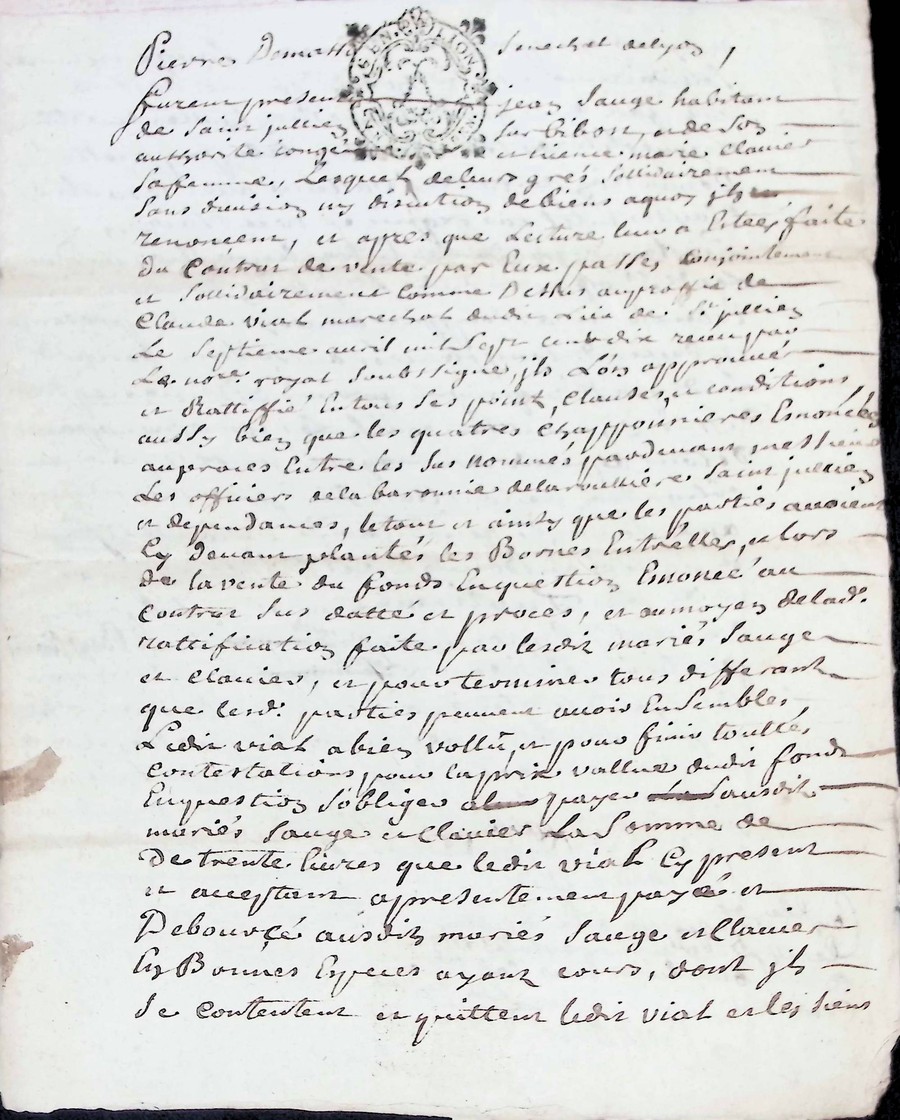 Pierre Dematt Senechal delyon,
GEN. DE LION
furent present jean Sauge habitant
de Saint jullien sur bibost, et de son
authorité congé et licence marie Clavier
safemme, Lesquels deleurs grés Sollidairement
Sans division ny discution debiens aquoy jls
renoncent, et apres que Lecture leur a Estées faite
du Contrat de vente par Eux passés Conjointement
et Sollidairement Comme Dessus auproffit de
Claude vial marechal dudit Lieu de St jullien
Le Septieme avril mil Sept cent dix receu par
Le nore. royal Soubssigne, jls L'ons approuvér
et Rattiffié Entous Ses point, Clauses, et conditions,
aussy bien que les quatres Chapponnieres Enoncée
auproces Entre les Sus nommés, pardevant messieurs
Les officiers dela baronnie delaroulliere Saint jullien
et dependances, letout et ainsy que les partiés avoient
Cy devant plantés les Bornes Entrélles, et lors
de la vente du fonds Enquestion Enoncé au
Contrat Sus datté et proces, et aumoyen delade.
rattification faite, par lesdit mariés Sauge
et Clavier, et pour terminer tous differant
que lesd. parties peuvent avoir EnSembles,
Ledit vial abien vollu, et pour finir touttes
Contestations, pour laprix vallue dudit fonds
Enquestion, S'oblige payer ausdit
mariés Sauge et Clavier La Somme de
De trente livres que ledit vial Cy present
et acceptant apresentement payé et
Debourçé ausdits mariés Sauge et Clavier
En Bonnes Especes ayant cours, dont jls
Se Contentent et quittent ledit vial et les Siens